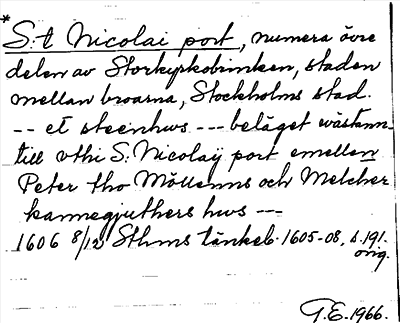 *
S:t Nicolai port, numera övre
delen av Storkyrkobrinken, staden
mellan broarna, Stockholms stad.
-- et steenhws --- beläget wästann-
till vthi S: Nicolaÿ port emellen
Peter tho Möllenns och Melcher
kannegjuthers hws ---
1606 8/12 Sthms tänkeb. 1605-08, s. 191.
orig.
G.E. 1966.